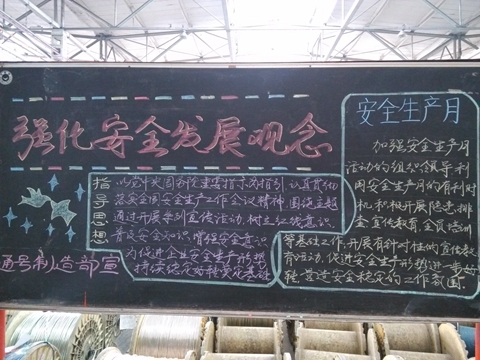 强化安全发展观念
指导思想
以党中央国务院重要指示为指引 认真贯彻
落实全国安全生产工作会议精神 围绕主题
通过开展系列宣传活动 树立红线意识
普及安全知识、增强安全意识
为促进企业安全生产形势
持续稳定好转奠定基础
通号制造部宣
安全生产月
加强安全生产月
活动的组织领导利
用安全生产月的有利时
机积极开展隐患排
查宣传教育、全员培训
等基础工作,开展有针对性的宣传教
育活动、促进安全生产形势进一步好
转,营造安全稳定的工作氛围.